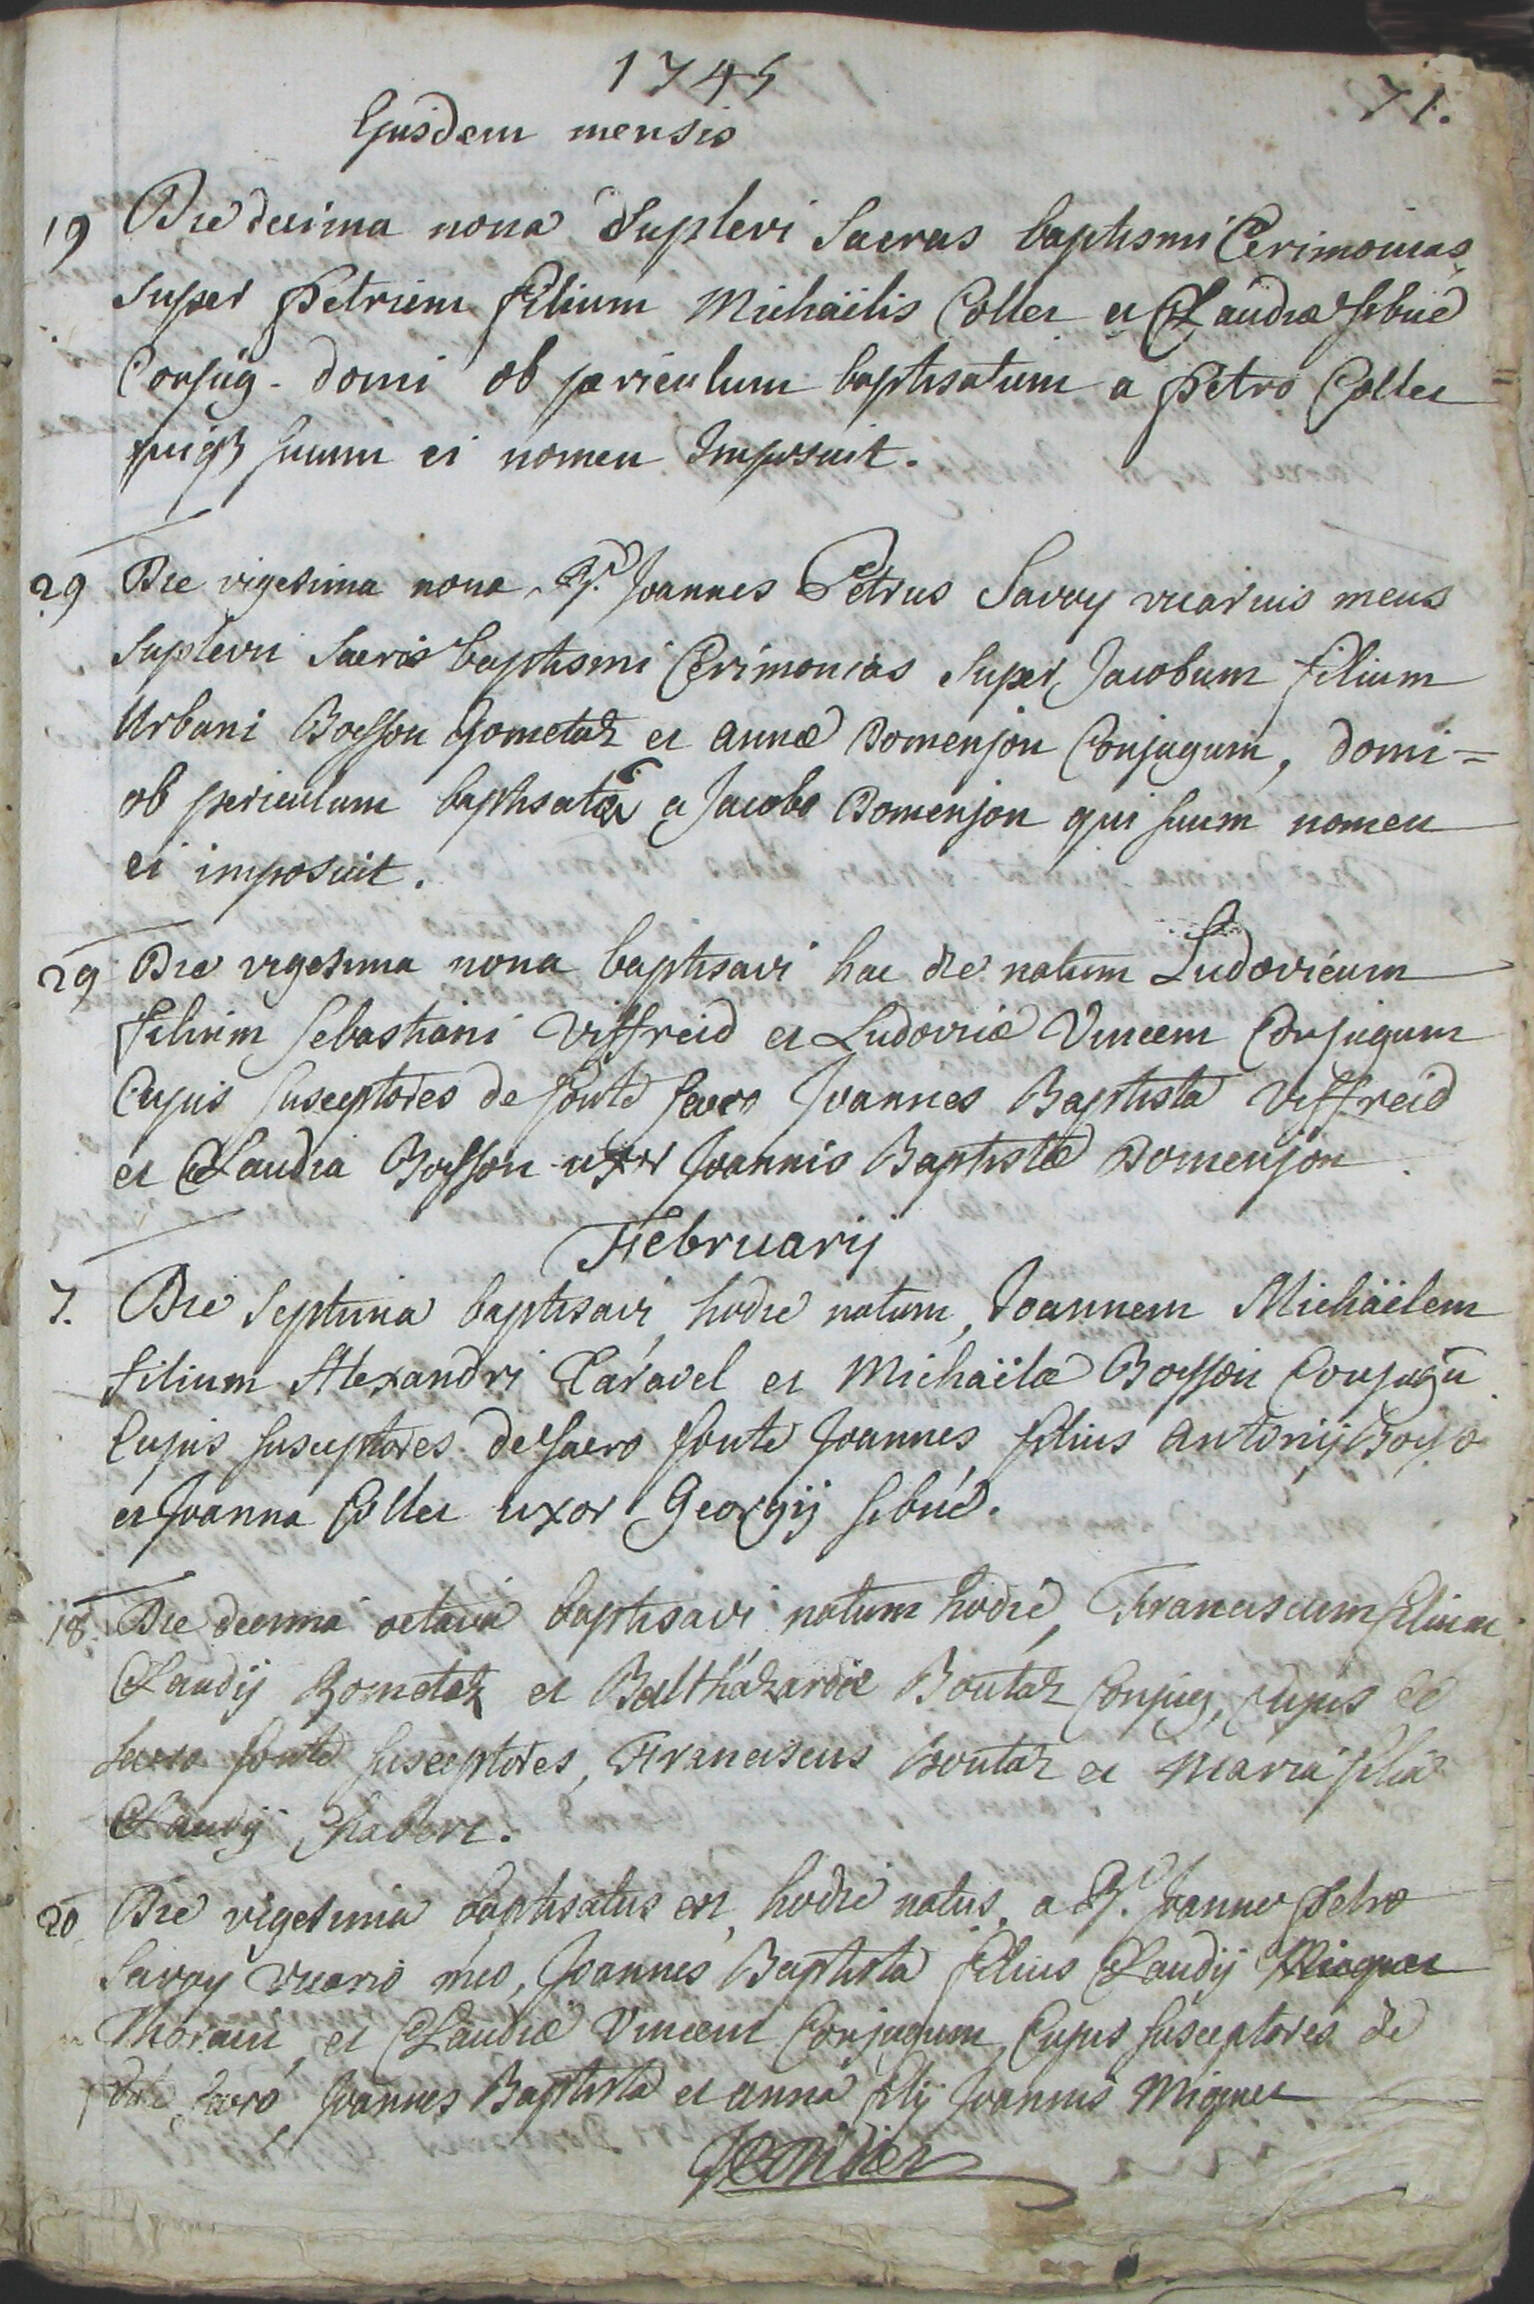 1745
71.
Ejusdem mensis
19 Die decima nona Suplevi Sacras baptismi Cerimonias
super Petrum filium Michaëlis Collet et Claudiæ Sibué
Conjug. domi ob periculum baptisatum a Petro Collet
quiq3 suum ei nomen Imposuit.
29 Die vigesima nona, R.d Joannes Petrus Savoy vicarius meus
suplevit sacras baptismi Cerimonias super Jacobum filium
Urbani Bosson Gometaz et annæ Domenjon Conjugum, domi=
ob periculum baptisatū a Jacobo Domenjon qui suum nomen
ei imposuit.
29 Die vigesima nona baptisavi hac die natum Ludovicum
filium Sebastiani Viffreid et Ludovicæ Vincent Conjugum
Cujus susceptores de fonte sacro Joannes Baptista Viffreid
et Claudia Bosson uxor Joannis Baptistæ Domenjon
Februarij
7. Die Septima baptisavi, hodie natum, Joannem Michaëlem
filium Alexandri Taravel et Michaëlæ Bosson Conjugū
Cujus susceptores de sacro fonte Joannes filius Antonij Bosso
et Joanna Collet uxor Georgij Sibué.
18. Die decima octava baptisavi natum hodie, Franciscum filium
Claudij Gometaz et Balthazardæ Boutaz Conjug, Cujus de
sacro fonte susceptores, Franciscus Boutaz et Maria filia
Claudij Chabert.
20 Die vigesima baptisatus est hodie natus, a R.d Joanne Petro
Savoy vicario meo, Joannes Baptista filius Claudij
et Claudiæ Vincent Conjugum Cujus susceptores de
fonte sacro, Joannes Baptista et anna filij Joannis Miquet